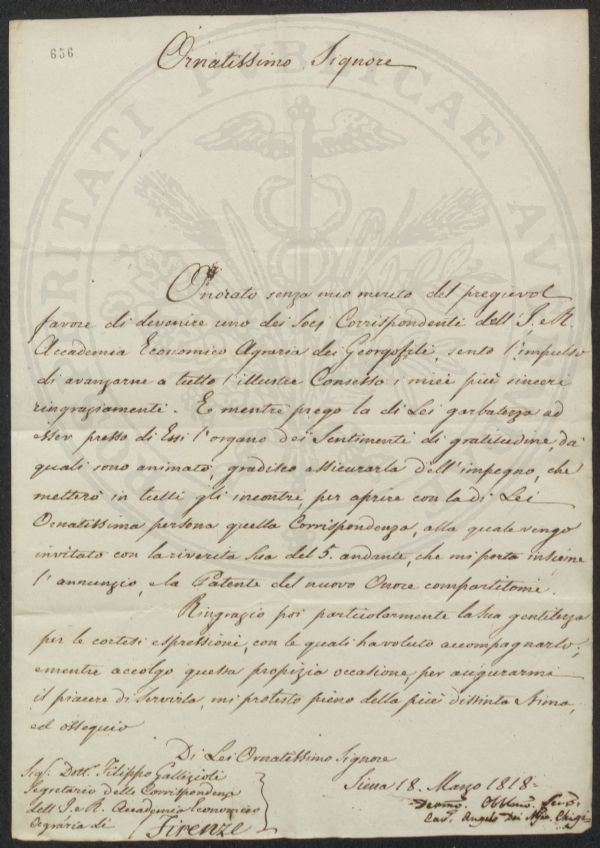 656
Ornatissimo Signore
Onorato senza mio merito del pregievol
favore di devenire uno dei Socj Corrispondenti dell' I. e R.
Accademia Economico Agraria dei Georgofili, sento l'impulso
di avanzarne a tutto l'illustre Consesso i miei più sinceri
ringraziamenti. E mentre prego la di Lei garbatezza ad
esser presso di Essi l'organo dei Sentimenti di gratitudine, da
quali sono animato, gradisco assicurarla dell'impegno, che
metterò in tutti gli incontri, per aprire con la di Lei
Ornatissima persona quella Corrispondenza, alla quale vengo
invitato con la riverita Sua del 5. andante, che mi porta insieme
l'annunzio, e la Patente del nuovo Onore compartitomi.
Ringrazio poi particolarmente la Sua gentilezza
per le cortesi espressioni, con le quali ha voluto accompagnarlo;
e mentre accolgo questa propizia occasione, per augurarmi
il piacere di Servirla, mi protesto pieno della più distinta Stima,
ed ossequio
Di Lei Ornatissimo Signore
Sig: Dott. Filippo Gallizioli
Segretario delle Corrispondenze
dell' I. e R. Accademia Economico
Agraria di Firenze
Siena 18. Marzo 1818.
Devmo. Obblmo. Serv.
Cav. Angelo Dei Chigi
PUBLICAE